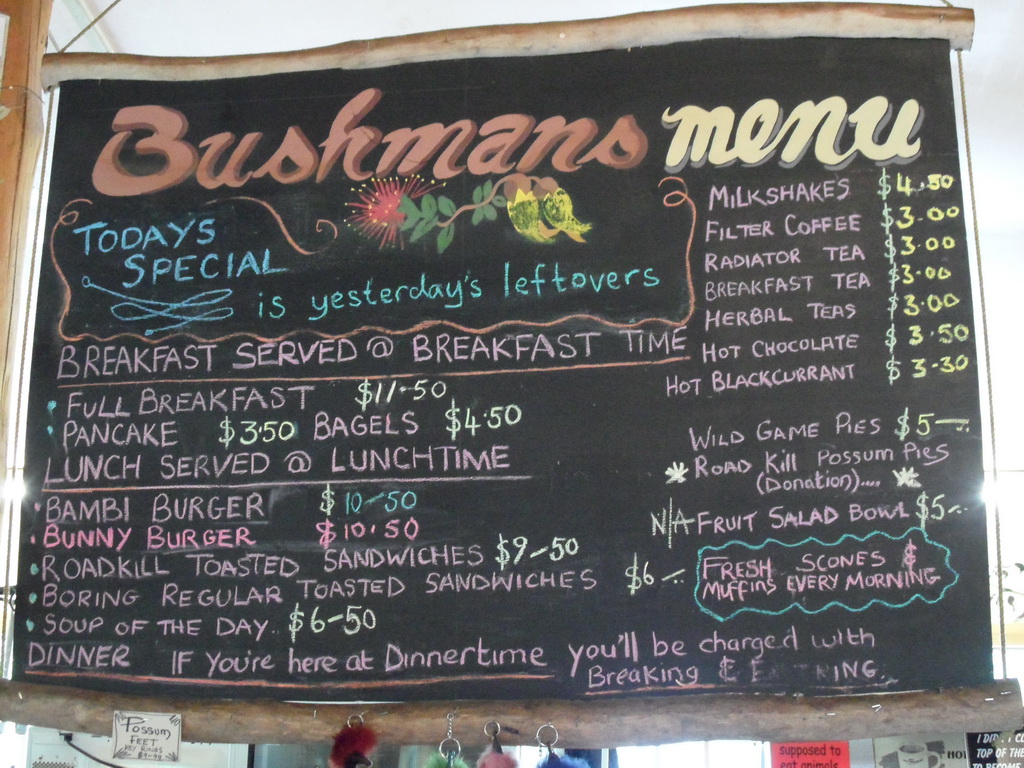 Bushmans menu
TODAYS
SPECIAL
is yesterday's leftovers
BREAKFAST SERVED @ BREAKFAST TIME
FULL BREAKFAST $11-50
PANCAKE $3.50 BAGELS $4.50
LUNCH SERVED @ LUNCHTIME
BAMBI BURGER $10-50
BUNNY BURGER $10.50
ROADKILL TOASTED SANDWICHES $9-50
BORING REGULAR TOASTED SANDWICHES $6-
SOUP OF THE DAY $6-50
DINNER IF YOU'RE here at Dinnertime you'll be charged with
Breaking &
MILKSHAKES $4.50
FILTER COFFEE $3.00
RADIATOR TEA $3.00
BREAKFAST TEA $3.00
HERBAL TEAS $3.00
HOT CHOCOLATE $3.50
HOT BLACKCURRANT $3.30
WILD GAME PIES $5-
ROAD Kill Possum Pies
(Donation)....
N/A FRUIT SALAD BOWL $5-
FRESH SCONES &
MUFFINS EVERY MORNING
POSSUM
FEET
KEY RINGS
supposed to
eat animals
HOT
I DID
TOP OF THE
TO BECOME